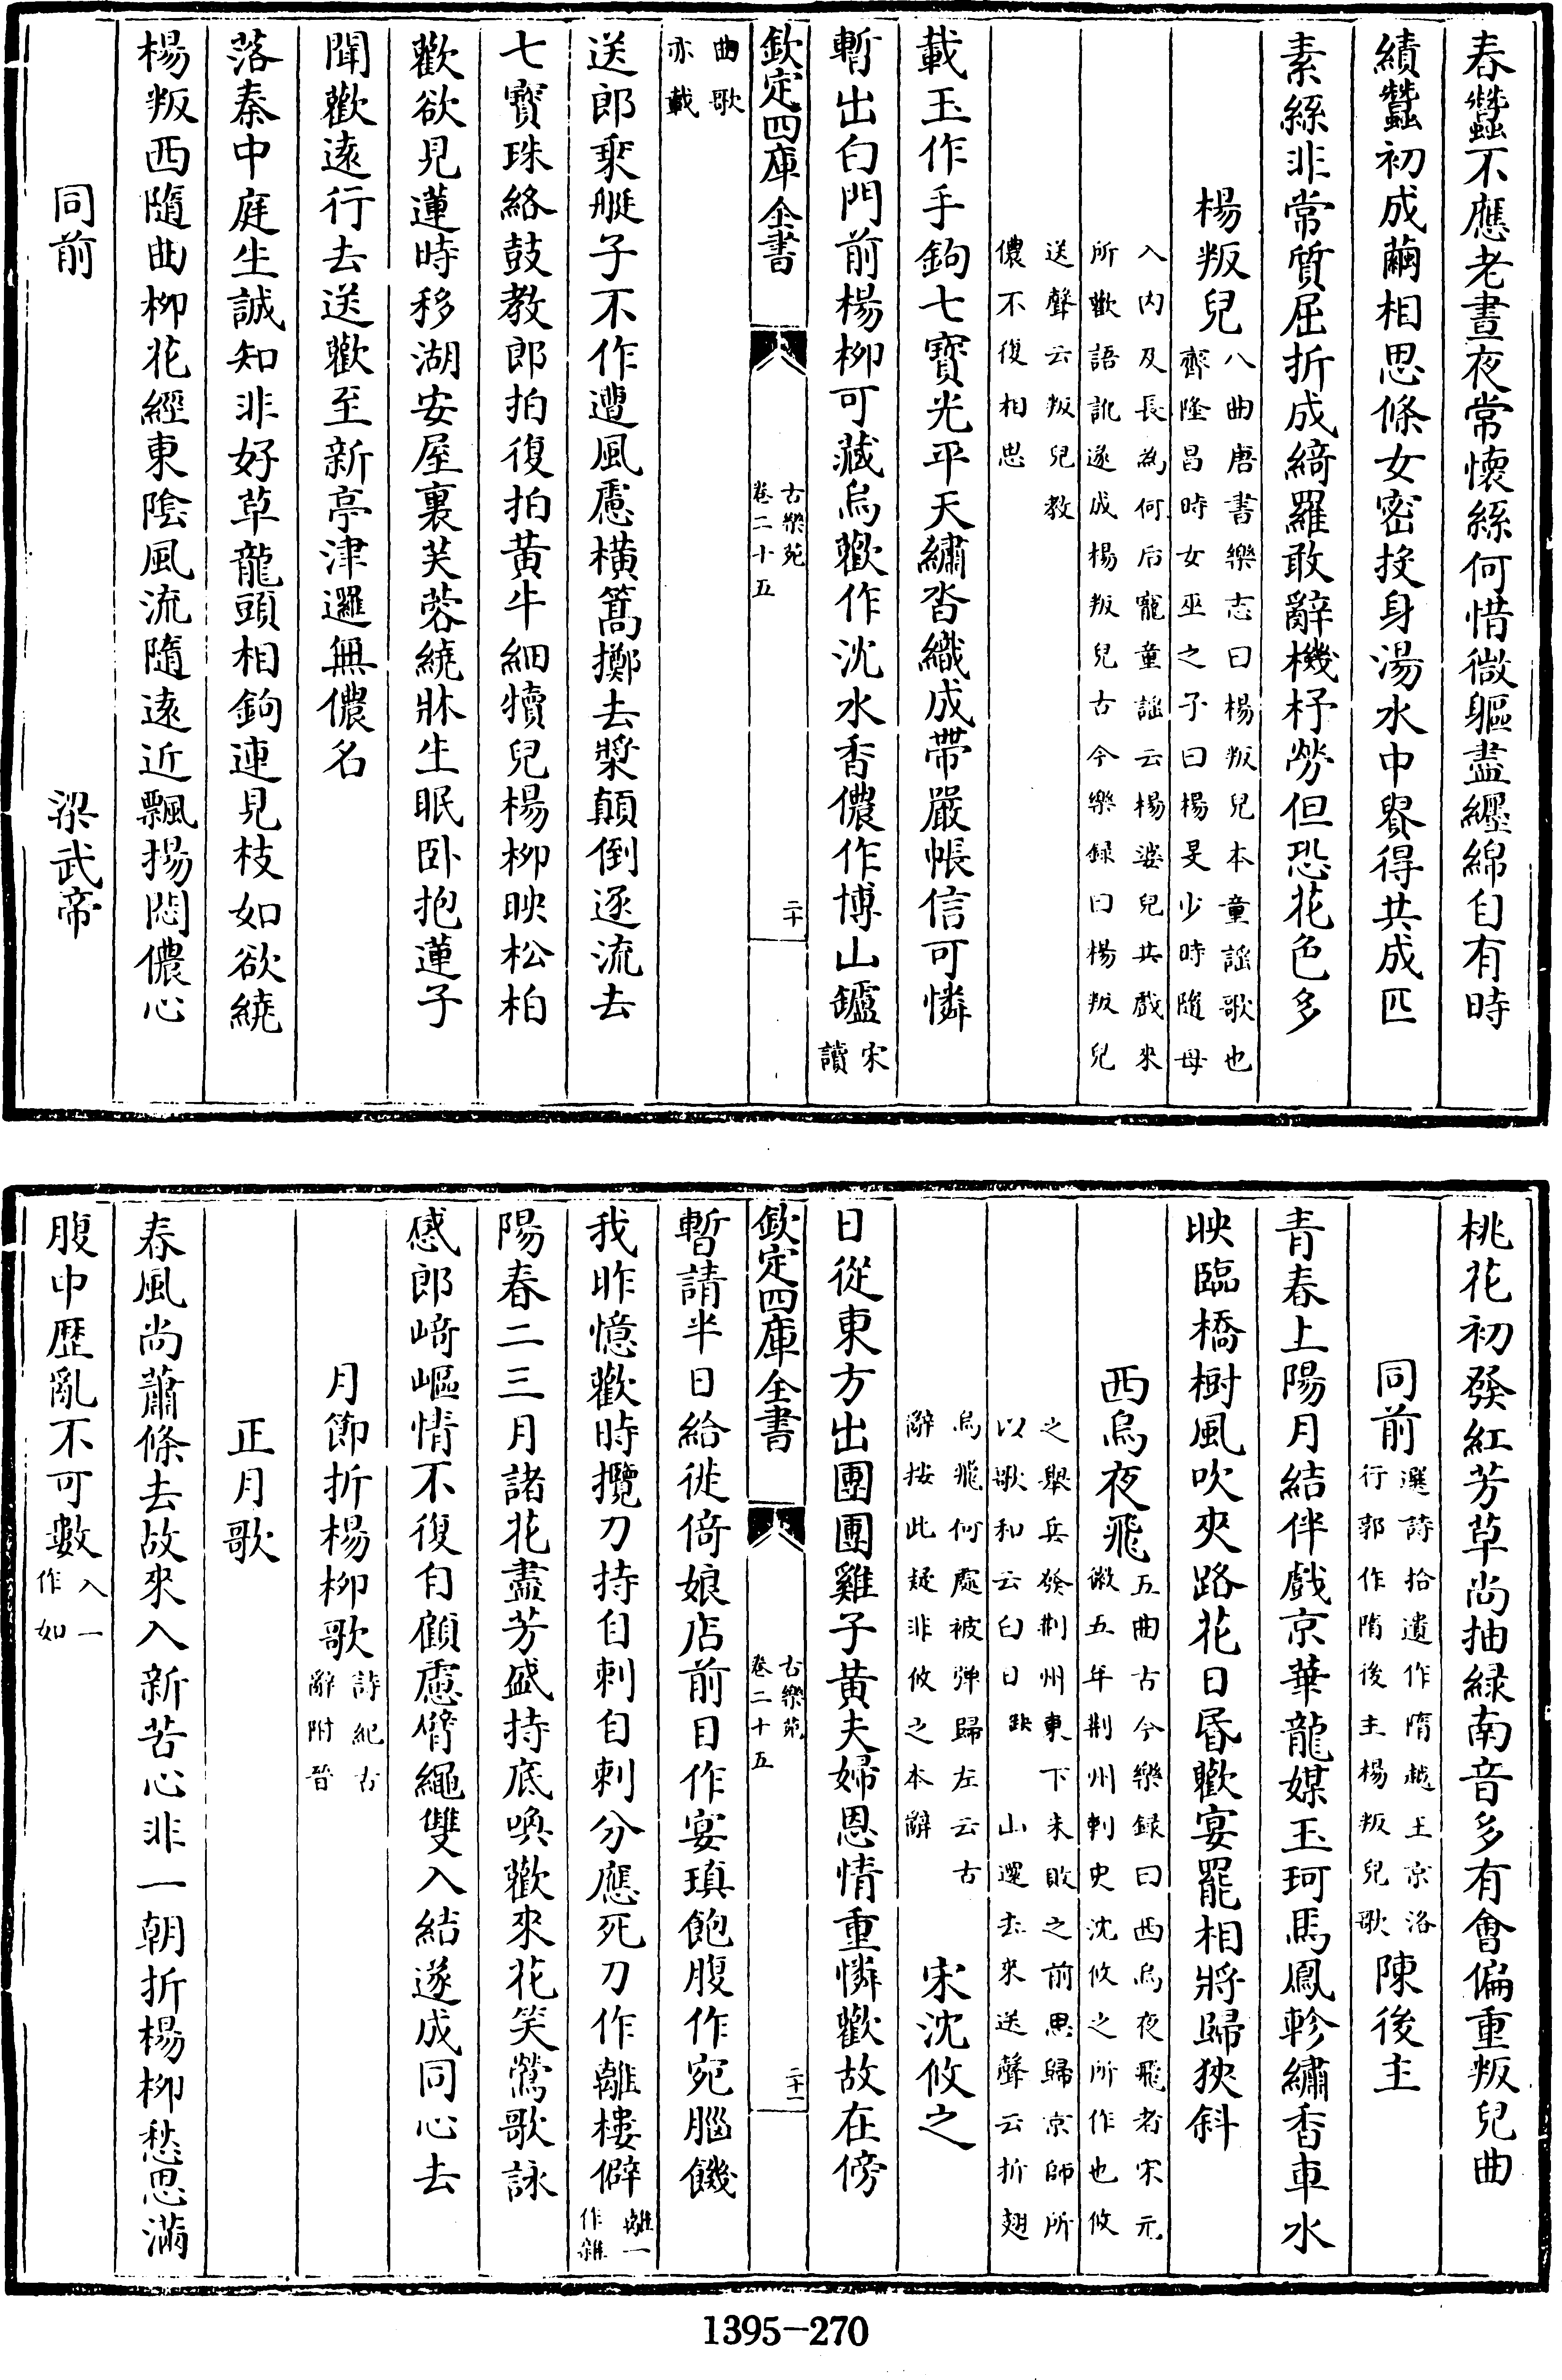 春蠶不應老晝夜常懷絲何惜微軀盡纒綿自有時
績蠶初成繭相思條女密投身湯水中貴得共成匹
素絲非常質屈折成綺羅敢辭機杼勞但恐花色多
楊叛兒八曲唐書樂志曰楊叛兒本童謡歌也
齊隆昌時女巫之子曰楊旻少時隨母
入内及長為何后寵童謡云楊婆兒共戲來
所歡語訛遂成楊叛兒古今樂録曰楊叛兒
送聲云叛兒教
儂不復相思
載玉作手鉤七寶光平天繡沓織成帶嚴帳信可憐
暫出白門前楊柳可藏烏歡作沈水香儂作博山鑪宋
讀
欽定四庫全書
古樂苑
卷二十五
二十
曲歌
亦載
送郎乘艇子不作遭風慮橫篙擲去槳顛倒逐流去
七寶珠絡鼓教郎拍復拍黃牛細犢兒楊柳映松柏
歡欲見蓮時移湖安屋裏芙蓉繞牀生眠臥抱蓮子
聞歡遠行去送歡至新亭津邏無儂名
落秦中庭生誠知非好草龍頭相鉤連見枝如欲繞
楊叛西隨曲柳花經東陰風流隨遠近飄揚悶儂心
同前 梁武帝
桃花初發紅芳草尚抽緑南音多有會偏重叛兒曲
同前選詩拾遺作隋越王京洛
行郭作隋後主楊叛兒歌陳後主
青春上陽月結伴戲京華龍媒玉珂馬鳳軫繡香車水
映臨橋樹風吹夾路花日昏歡宴罷相將歸狹斜
西烏夜飛五曲古今樂録曰西烏夜飛者宋元
徽五年荆州刺史沈攸之所作也攸
之舉兵發荆州東下未敗之前思歸京師所
以歌和云白日 跌 山還去來送聲云折翅
烏飛何處被彈歸左云古
辭按此疑非攸之本辭 宋沈攸之
日從東方出團團雞子黃夫婦恩情重憐歡故在傍
欽定四庫全書
古樂苑
卷二十五
二十一
暫請半日給徙倚娘店前目作宴瑱飽腹作宛腦饑
我昨憶歡時攬刀持自刺自刺分應死刀作離樓僻離一
作雜
陽春二三月諸花盡芳盛持底喚歡來花笑鶯歌詠
感郎崎嶇情不復自顧慮臂繩雙入結遂成同心去
月節折楊柳歌詩紀古
辭附晉
正月歌
春風尚蕭條去故來入新苦心非一朝折楊柳愁思滿
腹中歴亂不可數入一
作如
1395-270